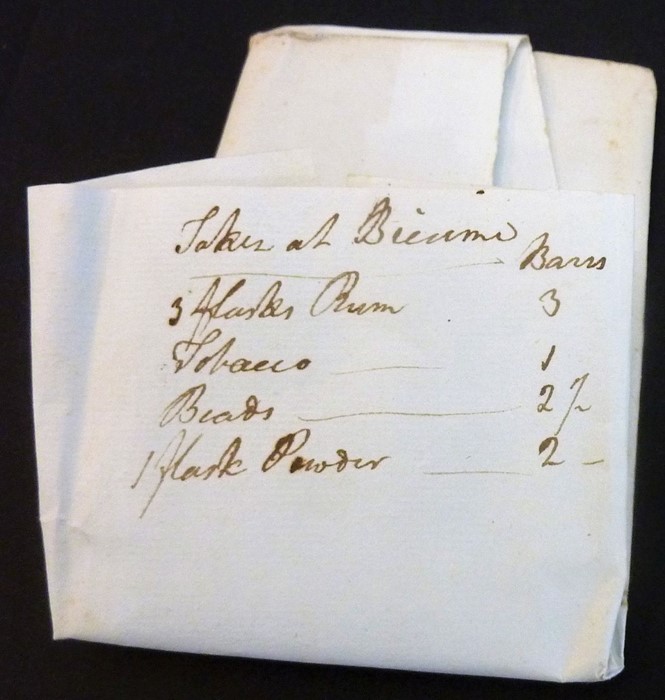 Taken at Bieume
Barrs
3 flasks Rum 3
Tobacco — 1
Beads — 2 /-
1 flask Powder — 2 -